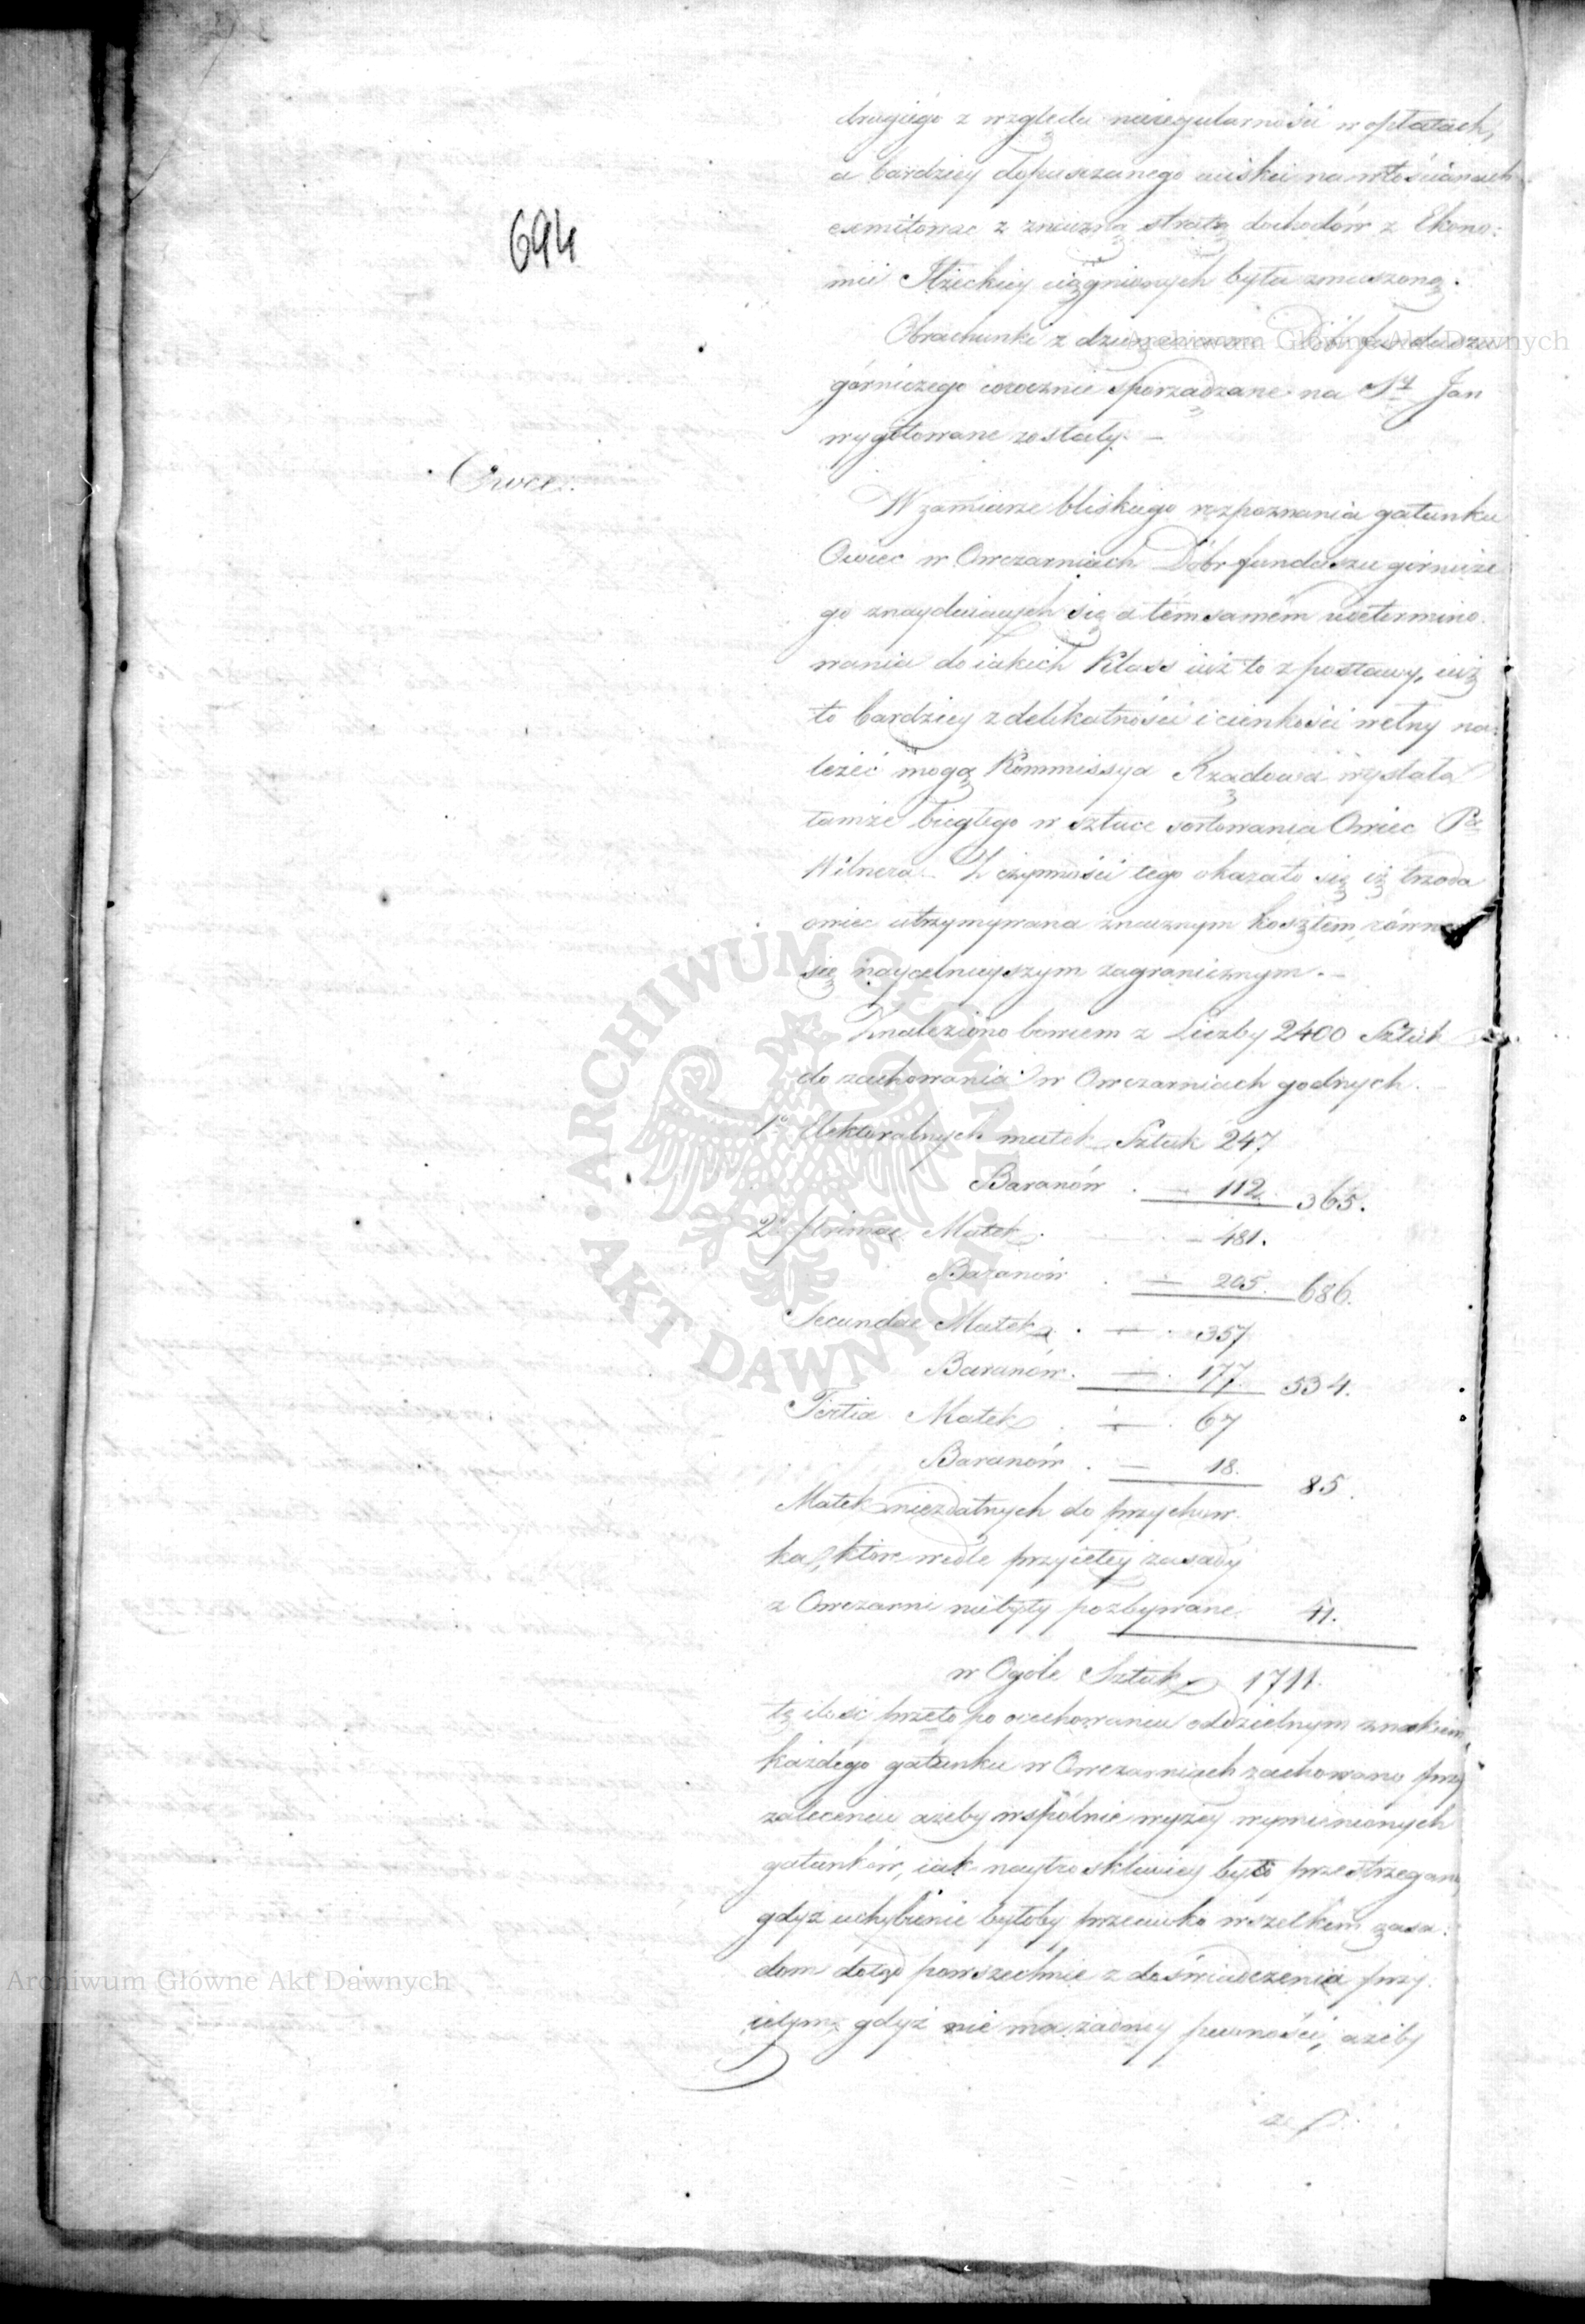 694
drugiego z względu nieregularności w opłatach,
a bardziey dopuszczanego ucisku na włościanach
exmitować z znaczną stratą dochodów z Ekono:
mii Iłżeckiey ciągnionych była zmuszoną.
Obrachunki z dzierżawcami Dóbr funduszu
górniczego corocznie sporządzane na St Jan
wygotowane zostały. –
Owce.
W zamiarze bliskiego rozpoznania gatunku
Owiec w Owczarniach Dóbr funduszu górnicze
go znayduiących się a tém samém udetermino.
wania do iakich Klass iuż to z postawy, iuż
to bardziey z delikatności i cienkości wełny na:
leżeć mogą Kommissya Rządowa wysłała
tamże biegłego w sztuce sortowania Owiec Pa
Wilnera. Z czynności tego okazało się iż trzoda
owiec utrzymywana znacznym kosztem, równa
się naycelnieyszym zagranicznym. –
Znaleziono bowiem z Liczby 2400 Sztuk
do zachowania w Owczarniach godnych.
1o Elektoralnych matek Sztuk 247
Baranów . — 112. 365.
2o primae Matek . – 481.
Baranów . — 205. 686.
Secundae Matek . — . 357
Baranów . — . 177. 534.
Tertia Matek . — . 67
Baranów . — 18. 85.
Matek niezdatnych do przychow.
ku, które wedle przyiętey zasady
z Owczarni niebyły pozbywane. 41.
w Ogóle Sztuk 1711.
tę ilość przeto po ocechowaniu oddzielnym znakiem
każdego gatunku w Owczarniach zachowano przy
zaleceniu ażeby wspólnie wyżey wymienionych
gatunków, iak naytroskliwiey było przestrzegane
gdyż uchybienie byłoby przeciwko wszelkim zasa:
dom dotąd powszechnie z doświadczenia przy.
iętym, gdyż nie ma żadney pewności, ażeby
Archiwum Główne Akt Dawnych
Archiwum Główne Akt Dawnych
ARCHIWUM GŁÓWNE AKT DAWNYCH